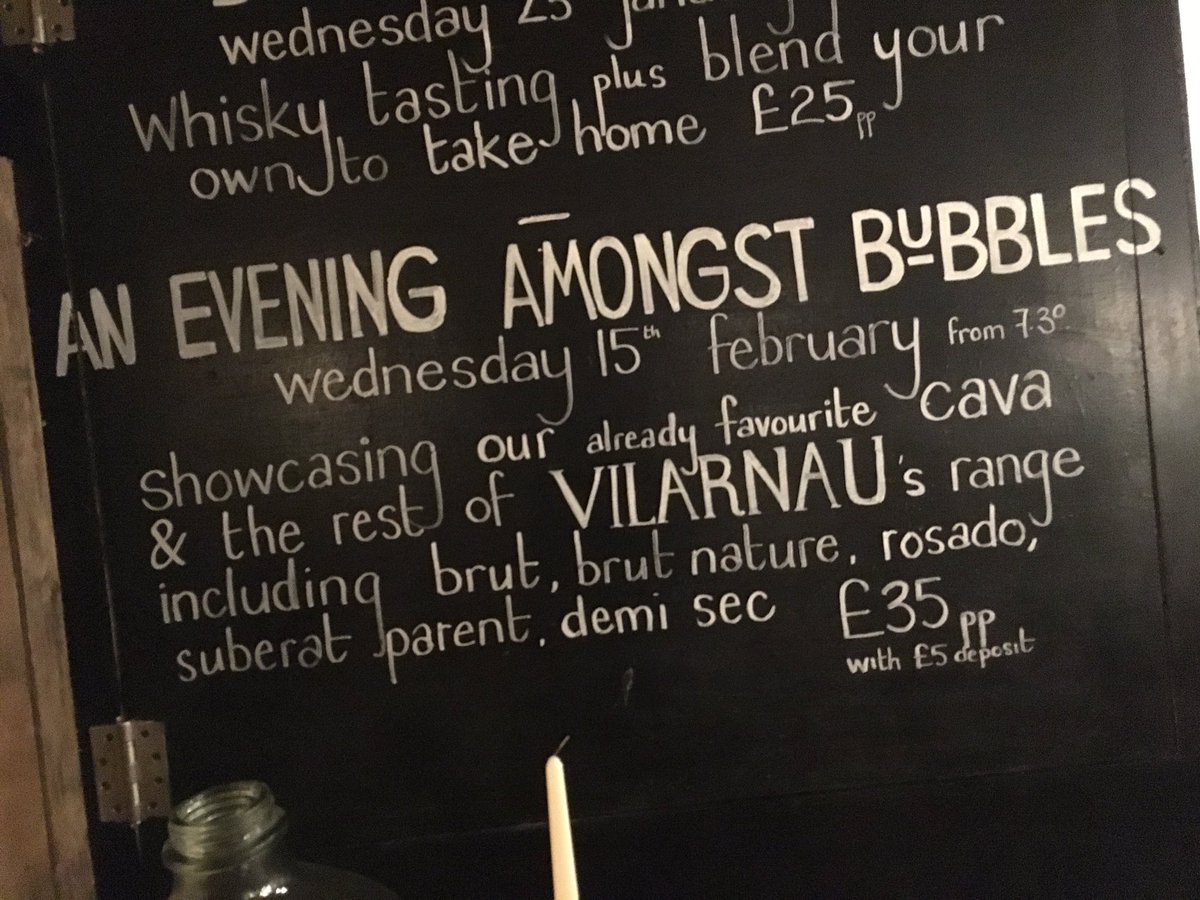 wednesday 25
Whisky tasting plus blend your
own to take home £25pp
AN EVENING AMONGST BUBBLES
wednesday 15th february from 7.30
showcasing our already favourite cava
& the rest of VILARNAU's range
including brut, brut nature, rosado,
suberat parent, demi sec £35pp
with £5 deposit